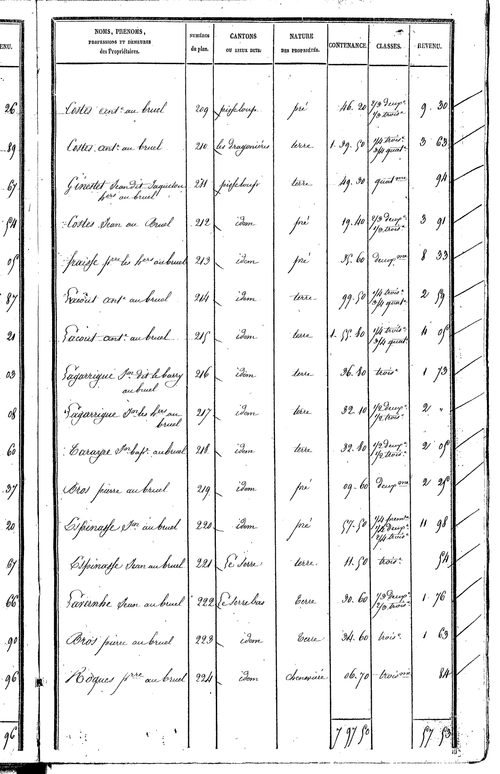 ENU.
26
89
67
54
05
87
21
03
08
60
37
20
67
66
90
96
96
NOMS, PRENOMS, PROFESSIONS ET DEMEURES des Propriétaires. NUMÉROS du plan. CANTONS OU LIEUX DITS. NATURE DES PROPRIÉTÉS. CONTENANCE. CLASSES. REVENU.
Costes ant. au bruel 209 pré 46. 20 2/3 deux. 1/3 trois. 9. 30
Costes ant. au bruel 210 terre 1. 39. 50 1/4 trois. 3/4 quat. 3 63
Ginestet Jean dit Jaquelou hers au bruel 211 terre 49. 30 quatme 94
Costes Jean au Bruel 212 idem pré 19. 40 2/3 deux. 1/3 trois. 3 91
fraisse pre les hers au bruel 213 idem pré 35. 60 deuxme 8 33
Lacout ant. au bruel 214 idem terre 99. 50 1/4 trois. 3/4 quat. 2 59
Lacout ant. au bruel 215 idem terre 1. 55. 40 1/4 trois. 3/4 quat. 4 05
Lagarrigue Jn dit le barry au bruel 216 idem terre 36. 40 trois. 1 73
Lagarrigue Jn les hers au bruel 217 idem terre 32. 10 1/2 deux. 1/2 trois. 2 "
Jn bapt. au bruel 218 idem terre 32. 40 1/2 deux. 1/2 trois. 2 05
Bros pierre au bruel 219 idem pré 09. 60 deuxme 2 25
Espinasse Jn au bruel 220 idem pré 57. 50 1/4 prem. 11 98
Espinasse Jean au bruel 221 Le Serre terre 11. 50 trois. 54
Jean au bruel 222 Le Serre bas Terre 30. 60 1/3 deux. 2/3 trois. 1 76
Bros pierre au bruel 223 idem Terre 34. 60 trois. 1 63
Roques pierre au bruel 224 idem cheneviere 06. 70 troisme 84
7 97 50 57 53